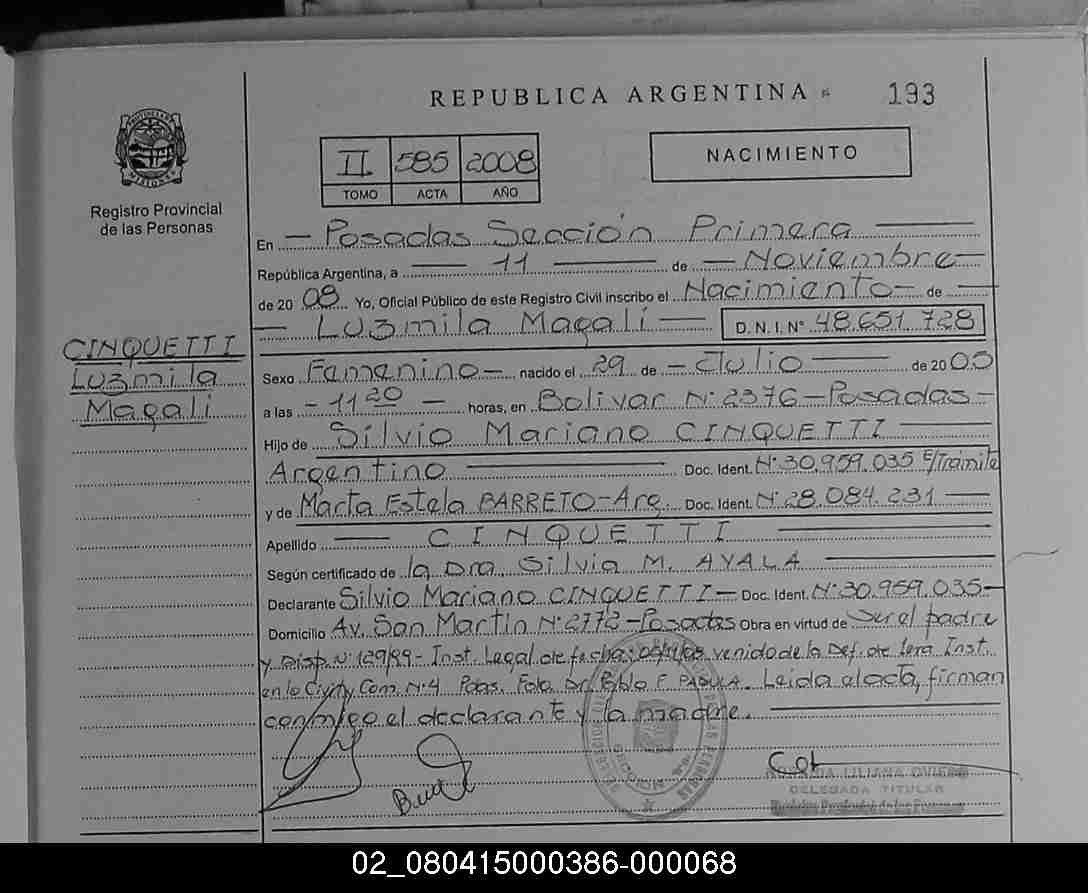 REPUBLICA ARGENTINA
193
II 585 2008
TOMO ACTA AÑO
NACIMIENTO
MISIONES
Registro Provincial
de las Personas
CINQUETTI
Luzmila
Magali
En Posadas Sección Primera
República Argentina, a 11 de Noviembre
de 2008 Yo, Oficial Público de este Registro Civil inscribo el Nacimiento de
Luzmila Magali D.N.I. Nº 48.651.728
Sexo Femenino nacido el 29 de Julio de 2005
a las 11 20 horas, en Bolivar Nº 2376 - Posadas -
Hijo de Silvio Mariano CINQUETTI
Argentino Doc. Ident. Nº 30.959.035 E/Tramite
y de Marta Estela BARRETO - Arg. Doc. Ident. Nº 28.084.231
Apellido CINQUETTI
Según certificado de la Dra. Silvia M. AYALA
Declarante Silvio Mariano CINQUETTI - Doc. Ident. Nº 30.959.035 -
Domicilio Av. San Martin Nº 2772 - Posadas Obra en virtud de Ser el padre
y Disp. Nº 129/99 - Inst. Legal de fecha: venido de la Def. de 1era Inst.
en lo Civil y Com. Nº 4 Pdas. Fdo. Dr. Pablo F. PADULA. Leida el acta, firman
conmigo el declarante y la madre.
LILIANA OVIEDO
DELEGADA TITULAR
Registro Provincial de las Personas
02_080415000386-000068